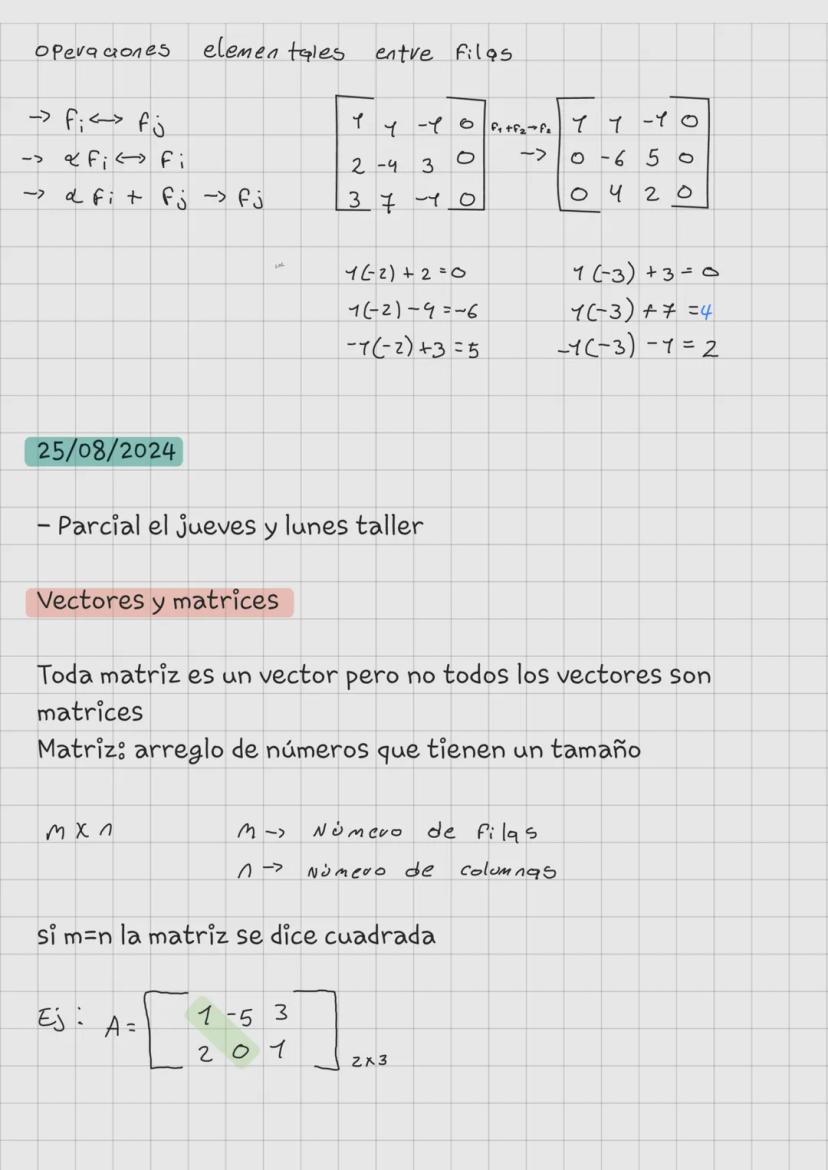 operaciones elementales entre filas
→ fi ↔ fj
→ α fi ↔ fi
→ α fi + fj → fj
1 1 -1 0
2 -4 3 0
3 7 -1 0
f1+f2→f2
→
1 1 -1 0
0 -6 5 0
0 4 2 0
1(-2) + 2 = 0
1(-2) - 4 = -6
-1(-2) + 3 = 5
1(-3) + 3 = 0
1(-3) + 7 = 4
-1(-3) - 1 = 2
25/08/2024
- Parcial el jueves y lunes taller
Vectores y matrices
Toda matriz es un vector pero no todos los vectores son
matrices
Matriz: arreglo de números que tienen un tamaño
m x n
m → Número de filas
n → Número de columnas
si m=n la matriz se dice cuadrada
Ej: A =
1 -5 3
2 0 1
2x3